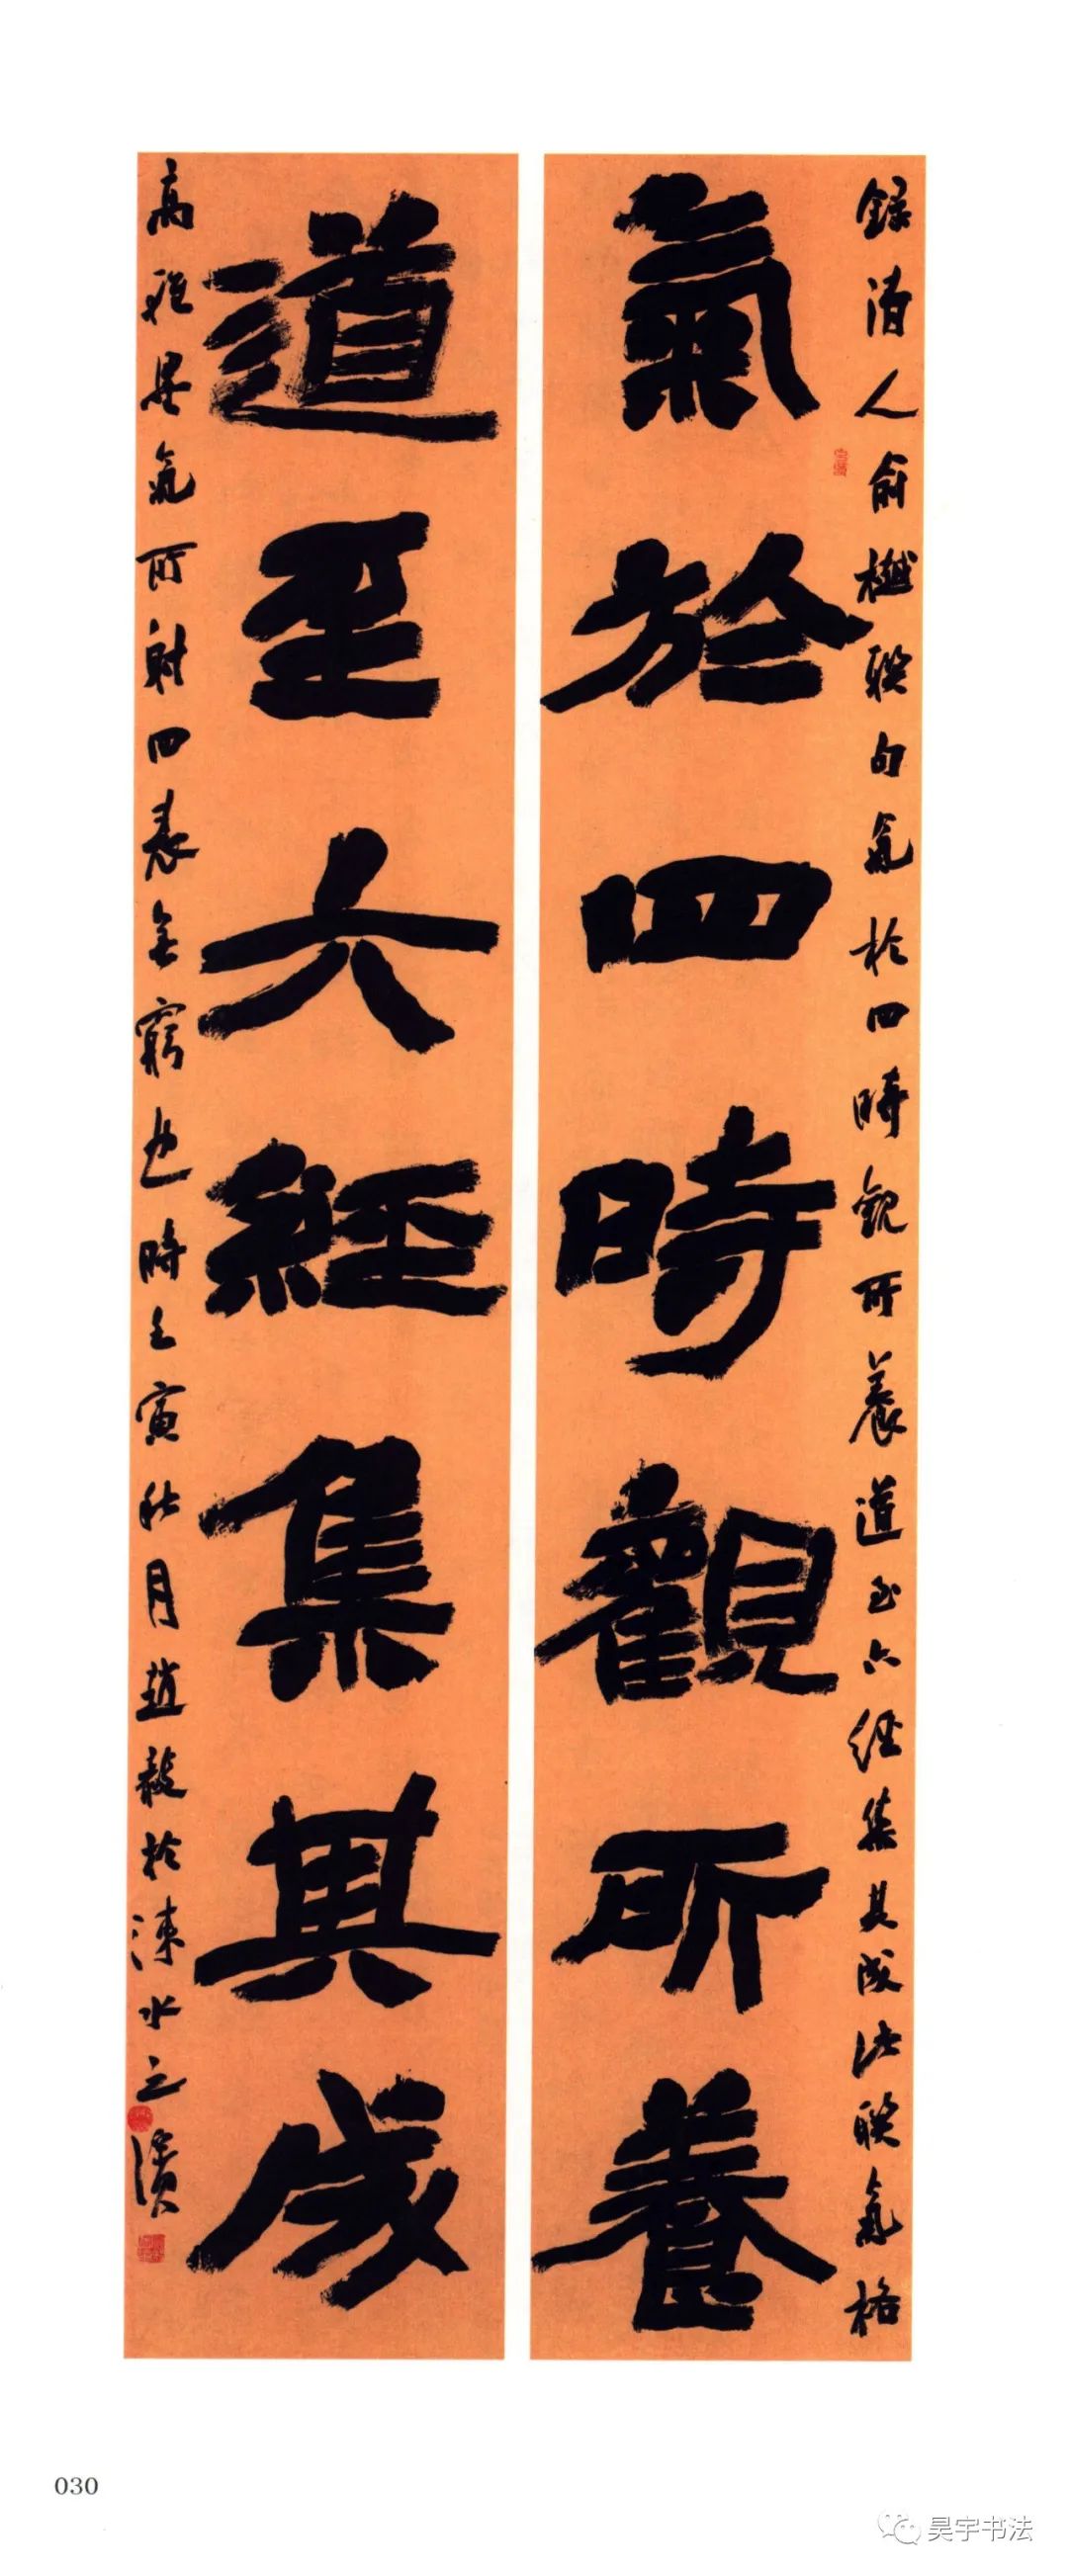 錄清人俞樾聯句氣於四時觀所養道至六經集其成此聯氣格
氣於四時觀所養
道至六經集其成
高 氣所射四表無窮也時壬寅秋月趙毅於涑水之濱
030
昊宇书法